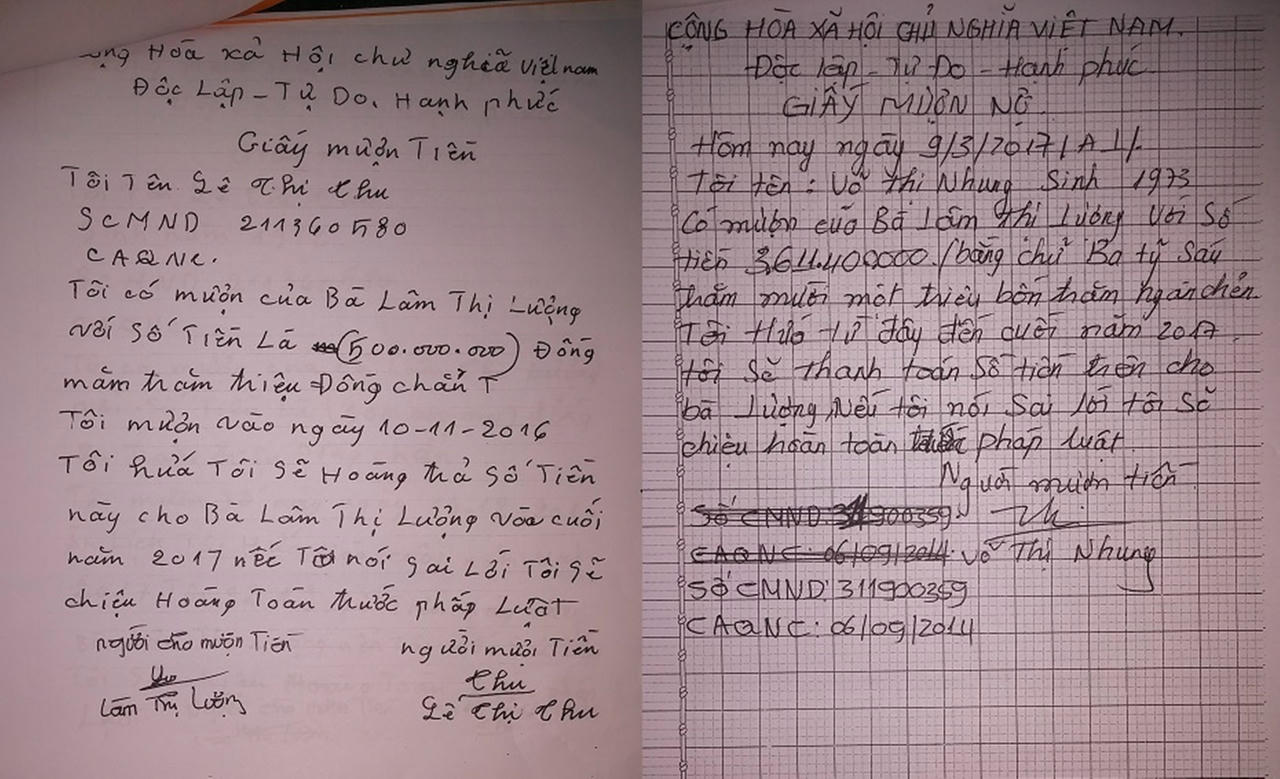 ộng Hòa xả Hội chư nghĩã việt nam
Độc Lập - Tự Do. Hạnh phúc
Giấy mượn Tiền
Tôi Tên Lê Thị Thu
SCMND 211360580
CAQNC.
Tôi có mượn của Bà Lâm Thị Lượng
với Số Tiền Là (500.000.000) Đồng
măm trăm triệu Đồng chẳn
Tôi mượn vào ngày 10-11-2016
Tôi hứa Tôi Sẽ Hoàng trả Số Tiền
này cho Bà Lâm Thị Lượng vào cuối
năm 2017 nếc Tôi nói Sai Lời Tôi Sẽ
chiệu Hoàng Toàn trước pháp Luật
người cho mượn Tiền
người mười Tiền
Lâm Thị Lượng
Thu
Lê Thị Thu
CỘNG HÒA XÃ HỘI CHỦ NGHĨA VIỆT NAM.
Độc lập - Tự Do - Hạnh phúc
GIẤY MƯỢN NỢ
Hôm nay ngày 9/3/2017/AL/.
Tôi tên : Võ Thị Nhung Sinh 1973
Có mượn cuả Bà Lâm Thị Lượng Với Số
tiền 3.611.400.000./bằng chữ Ba tỷ Sáu
trăm mười một triệu bốn trăm ngàn chẻn
Tôi Hứa từ đây đến cuối năm 2017
tôi Sẽ thanh toán Số tiền trên cho
bà Lượng, Nếu tôi nói Sai lời tôi Sẽ
chiệu hoàn toàn pháp luật
Người mượn tiền
Số CMND: 311900359
CAQNC: 06/09/2014 Võ Thị Nhung
Số CMND: 311900359
CAQNC: 06/09/2014